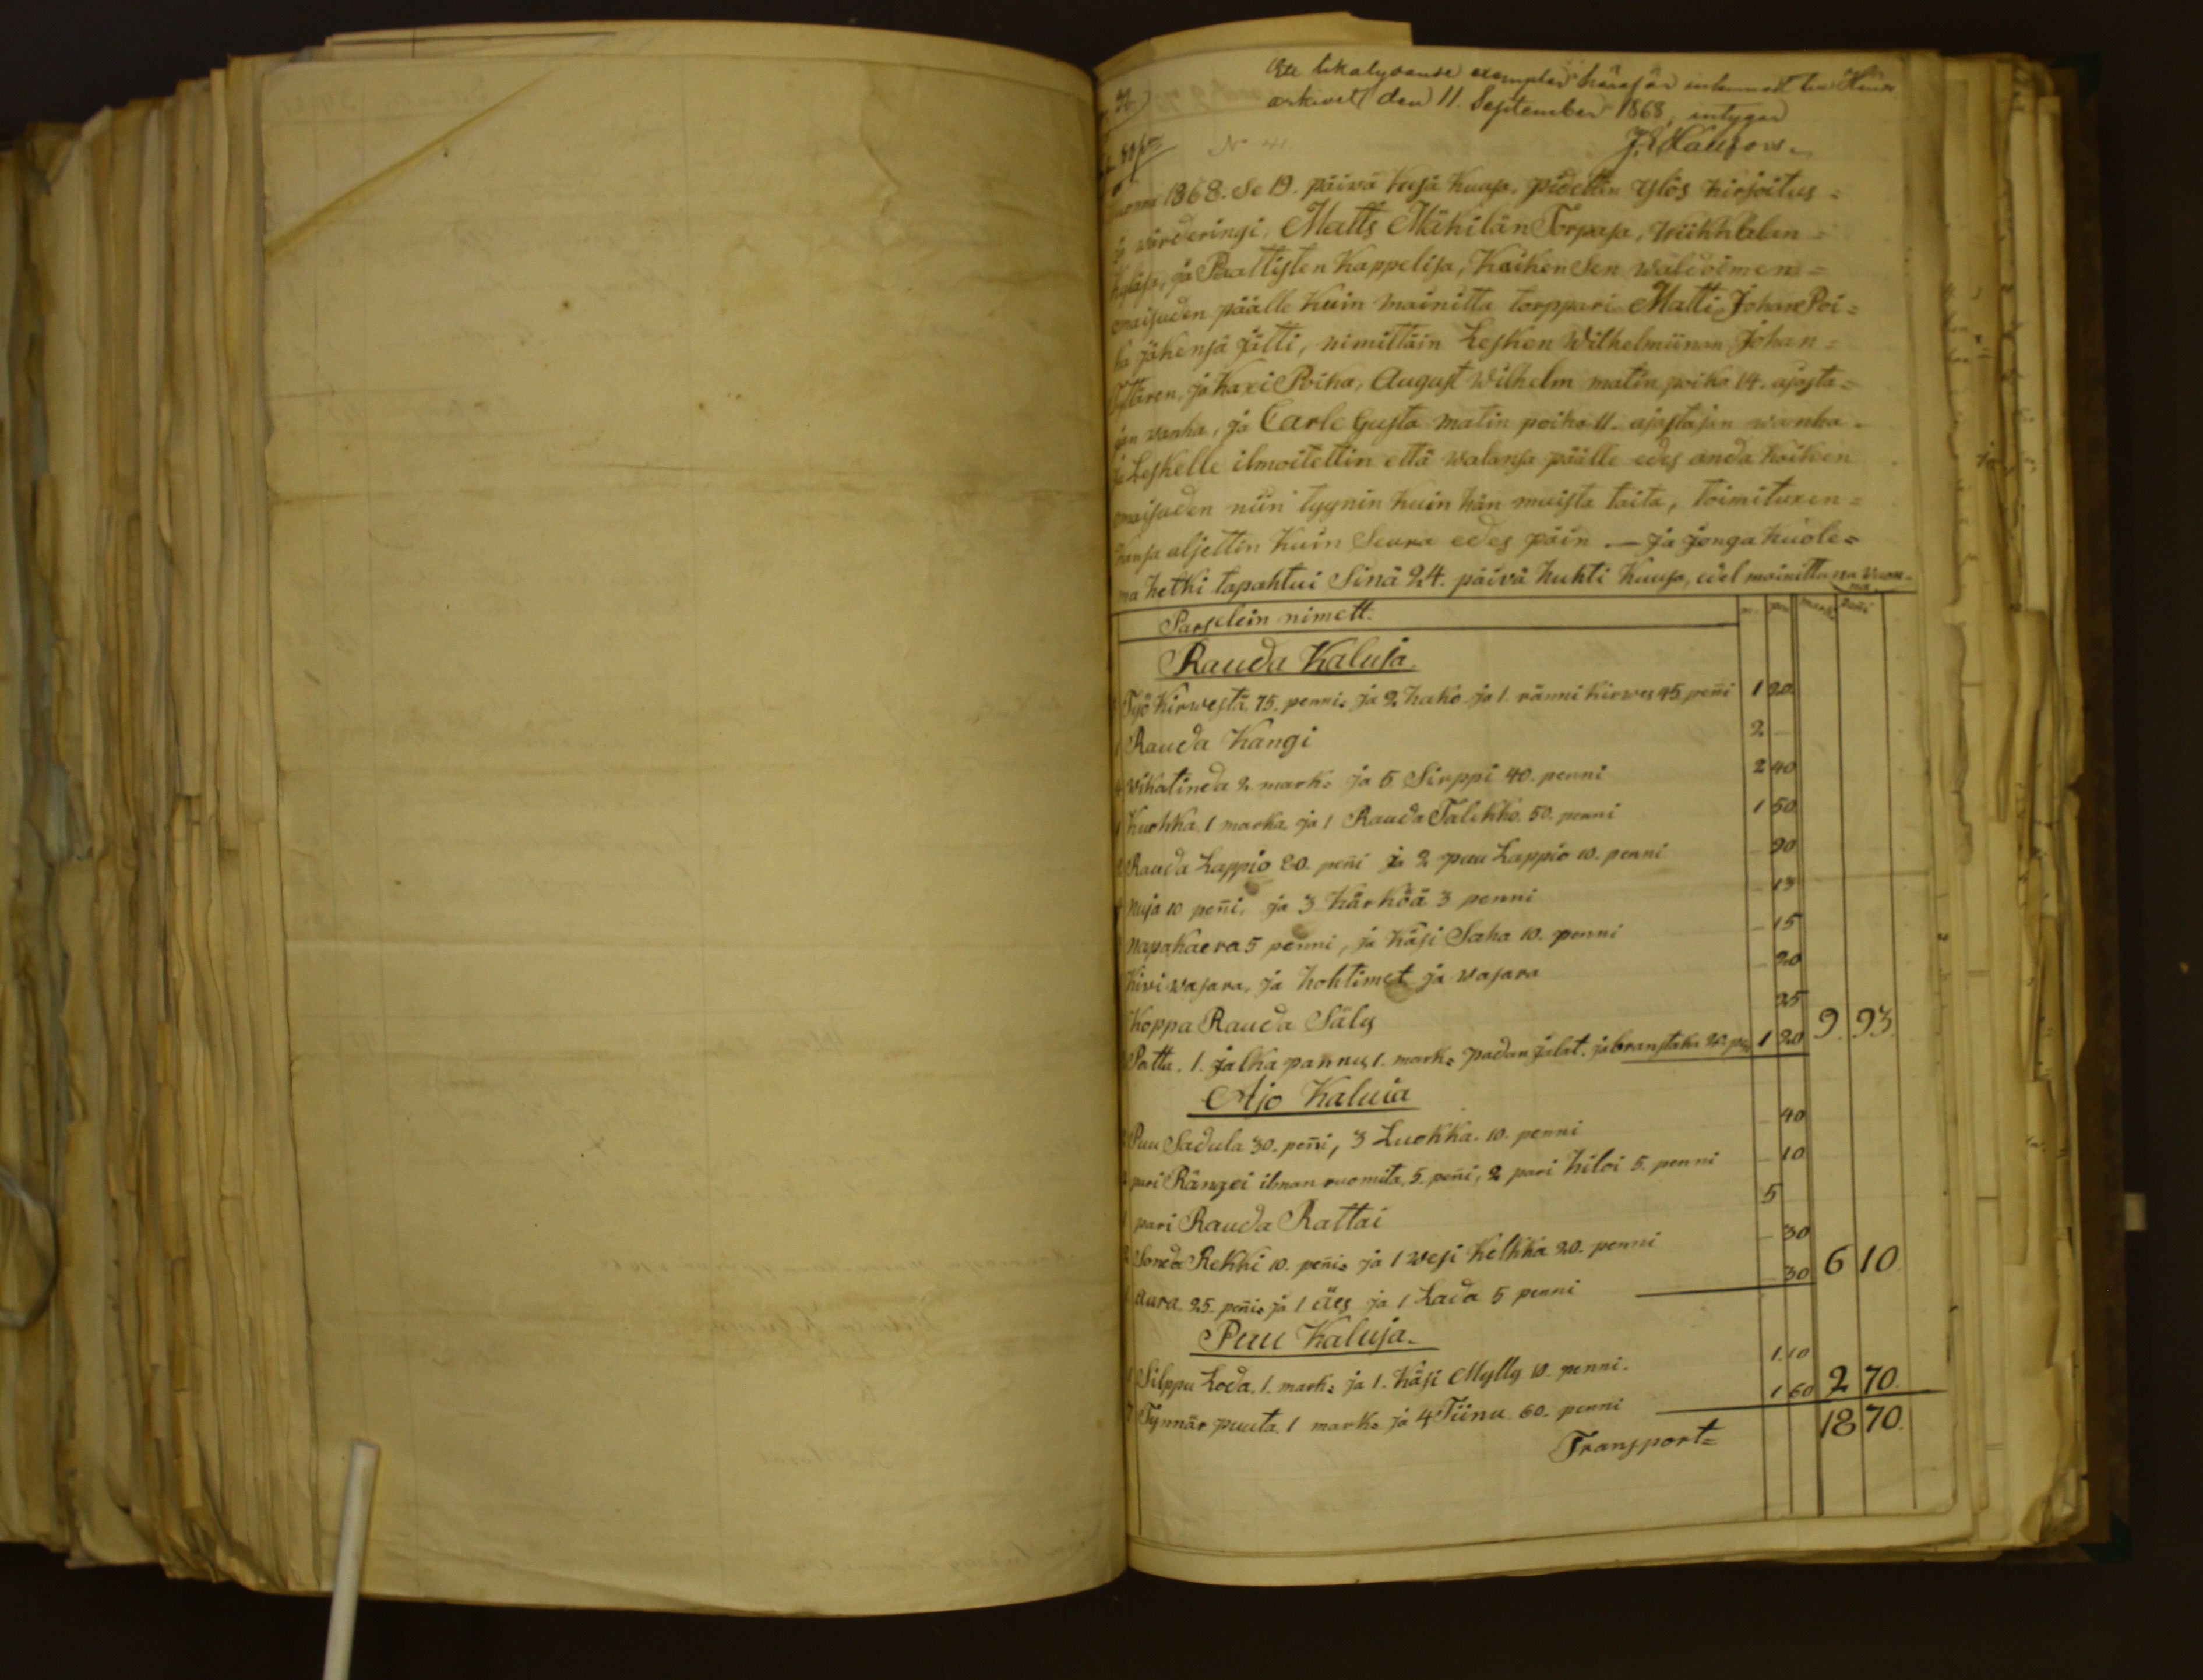 Ett likalydande exemplar häraf är inlemnadt till Härads
arkivet den 11. September 1868, intygar
N° 41.
Vuonna 1868. Se 19. päivä kesä kuusa, pidettin ylös kirjoitus=
ja wärderingi, Matts Mäkilän Torpasa, Wiikkalan=
kyläsä, ja Paattisten Kappelisa, Kaiken sen wäldoimen=
omaisuden päälle kuin mainittu torppari Matti Johan Poi=
ka jäkensä jätti, nimittäin Lesken Wilhelmiinan Johan=
Tyttären, ja kaxi Poika, August Wilhelm matin poika 14. ajasta=
jan vanha, ja Carle Gusta matin poika 11. ajastajan wanha.
ja Leskelle ilmoitettin että walansa päälle edes anda kaiken
omaisuden niin tyynin kuin hän muista taita, toimituxen=
kansa aljettin kuin Seura edes päin. — ja jonga kuole=
ma hetki tapahtui Sinä 24. päivä huhti kuusa, edel mainittuna vuon=
na
Parselein nimett. m. pen marka peñi
Rauda Kaluja.
Työ Kirwestä, 75. penni= ja 2 hako ja 1. ränni kirwes 45 peñi 1 20
1 Rauda Kangi 2 —
4 vikatineda 2 mark= ja 5 Sirppi 40. penni 2 40
1 Kuokka 1 marka, ja 1 Rauda Talikko. 50. penni 1 50
2 Rauda Lappio 20. peñi ja 2 puu Lappio 10. penni — 30
nuja 10 peñi, ja 3 kärköä 3 penni — 13
napakaera 5 penni, ja käsi Saha 10. penni — 15
kivi wasara, ja hohtimet ja wasara — 20
Koppa Rauda Säly 25
Patta. 1. jalka pannu, 1. mark= padan jalat. ja branstaka 20. peñ 1 20 9. 93.
Ajo Kaluia
Puu Sadula 30. peñi, 3 Luokka. 10. penni — 40
pari Rängei ilman ruomita, 5. peñi, 2 pari hiloi 5. penni — 10
1 pari Rauda Rattai 5
2 Soneda Rekki 10. peñi= ja 1 wesi kelkka 20. penni — 30
1 aura. 25. peñi= ja 1 äes ja 1 Lada 5 penni — 30 6 10
Puu Kaluja.
1 Silppu Loda. 1. mark= ja 1. Käsi Mylly 10. penni. 1. 10
7 Tynnär puuta. 1 mark= ja 4 Tiinu 60. penni 1 60 2 70.
Transport= 18 70.